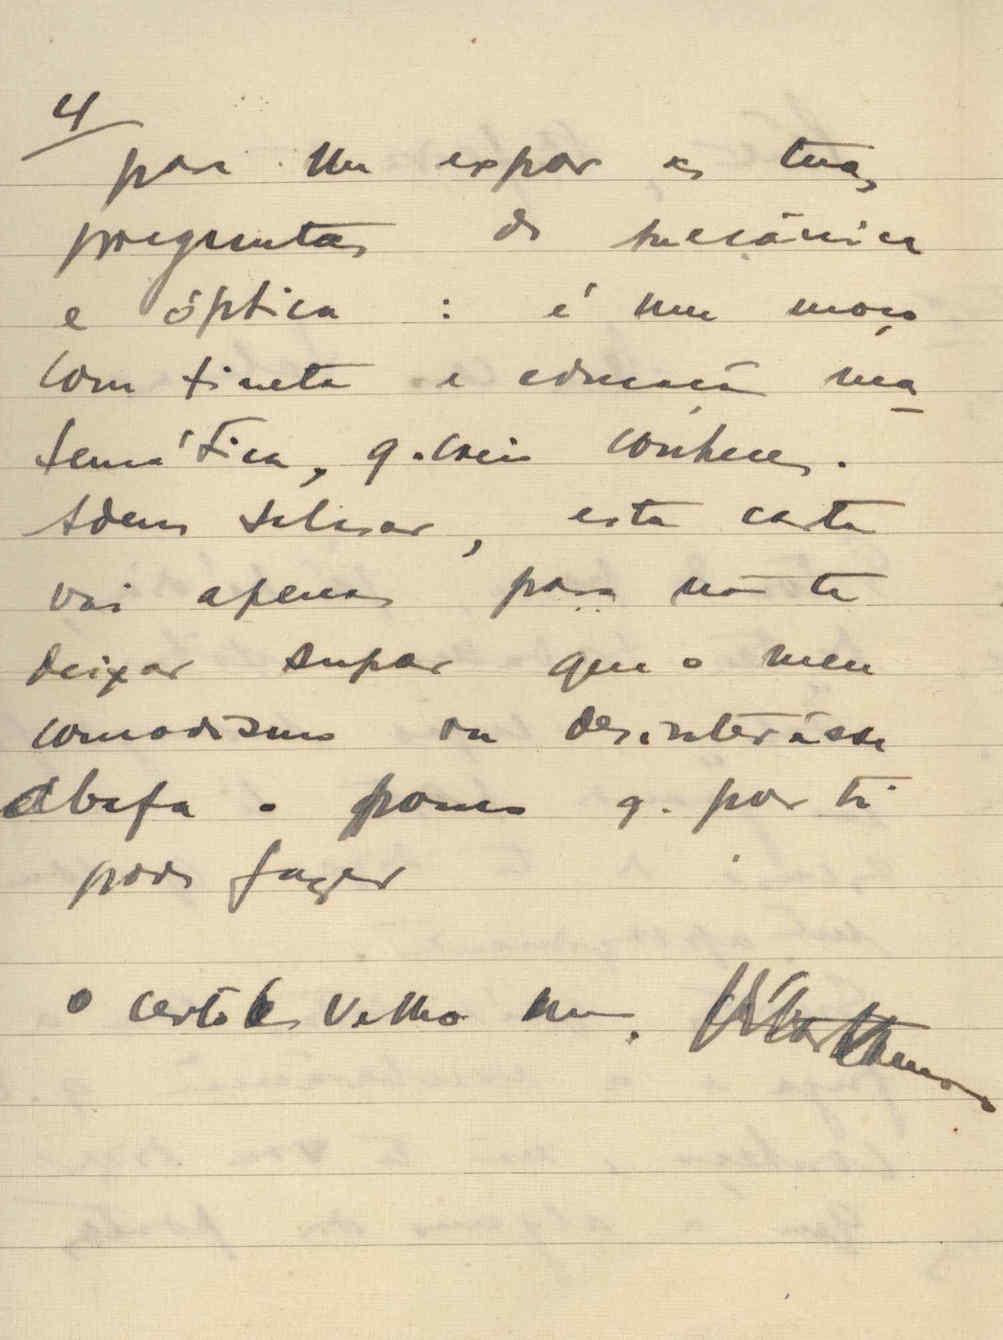 4
para lhe expor as tuas
preguntas de mecânica
e óptica : é um moço
com tineta e educação ma_
temática, q. creio conheces.
Adeus , esta carta
vai apenas para não te
deixar supor que o meu
comodismo ou desinterêsse
abafa o pouco q. por ti
pode fazer
o certo e velho